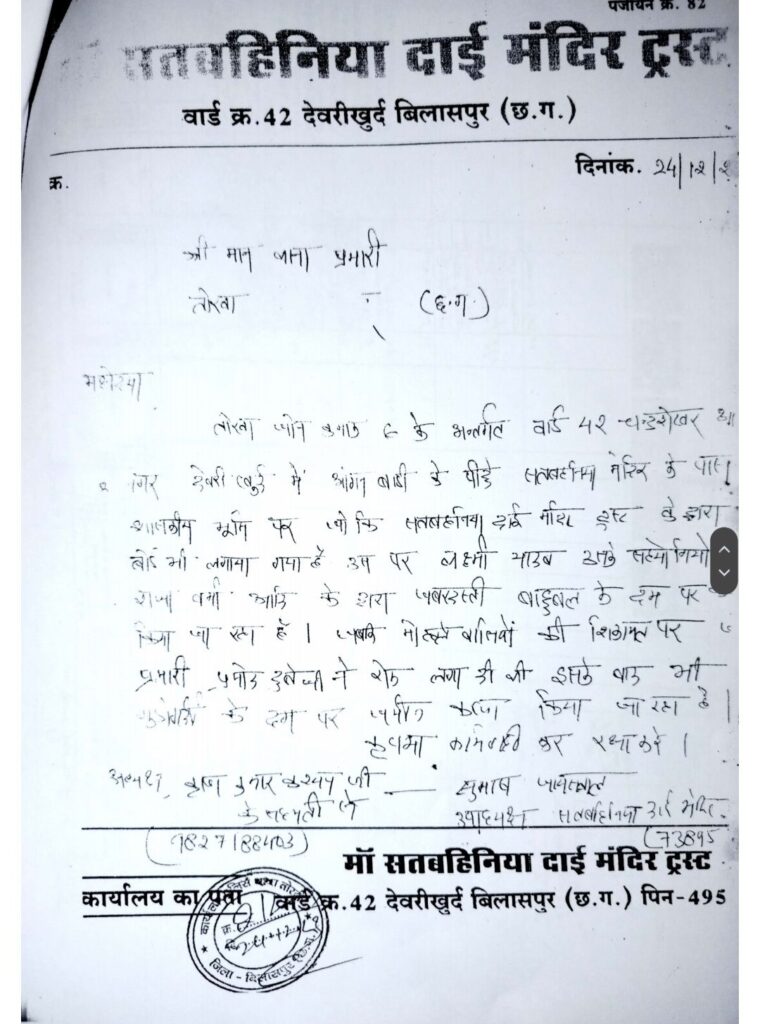 पंजीयन क्र. 82
माँ सतबहिनिया दाई मंदिर ट्रस्ट
वार्ड क्र.42 देवरीखुर्द बिलासपुर (छ.ग.)
क्र.
दिनांक. 24/12/2
श्री मान थाना प्रभारी
तोरवा (छ.ग.)
महोदय
तोरवा जोन क्रमांक 6 के अन्तर्गत वार्ड 42 चन्द्रशेखर
नगर देवरी खुर्द में आंगन बाडी के पीछे सतबहनिया मंदिर के पास
शासकीय भूमि पर जो कि सतबहनिया दाई मंदिर ट्रस्ट के द्वारा
बोर्ड भी लगाया गया है उस पर लक्ष्मी यादव उसके सहयोगियो
राजा वर्मा आदि के द्वारा जबरदस्ती बाहुबल के दम पर
किया जा रहा है । जबकि मोहल्ले वासियों की शिकायत पर
प्रभारी प्रमोद ने रोक लगा दी थी इसके बाद भी
के दम पर जमीन कब्जा किया जा रहा है ।
कृपया कार्यवाही कर रक्षा करे ।
अध्यक्ष, कृष्ण कुमार कश्यप जी — सुभाष जायसवाल
के सहमती से उपाध्यक्ष सतबहिनिया दाई मंदिर
(9827188403) (73895
माँ सतबहिनिया दाई मंदिर ट्रस्ट
कार्यालय का पता वार्ड क्र.42 देवरीखुर्द बिलासपुर (छ.ग.) पिन-495
जिला - बिलासपुर (छ.ग.)